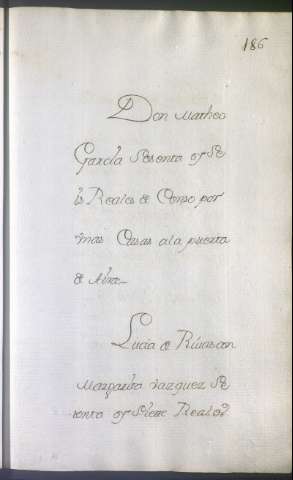 186
Don Matheo
Garcia Sesenta y Se
is Reales de Censo por
unas Casas ala puerta
de
Lucia de Rivas con
Margarita Vazquez Se
senta y siete Reales